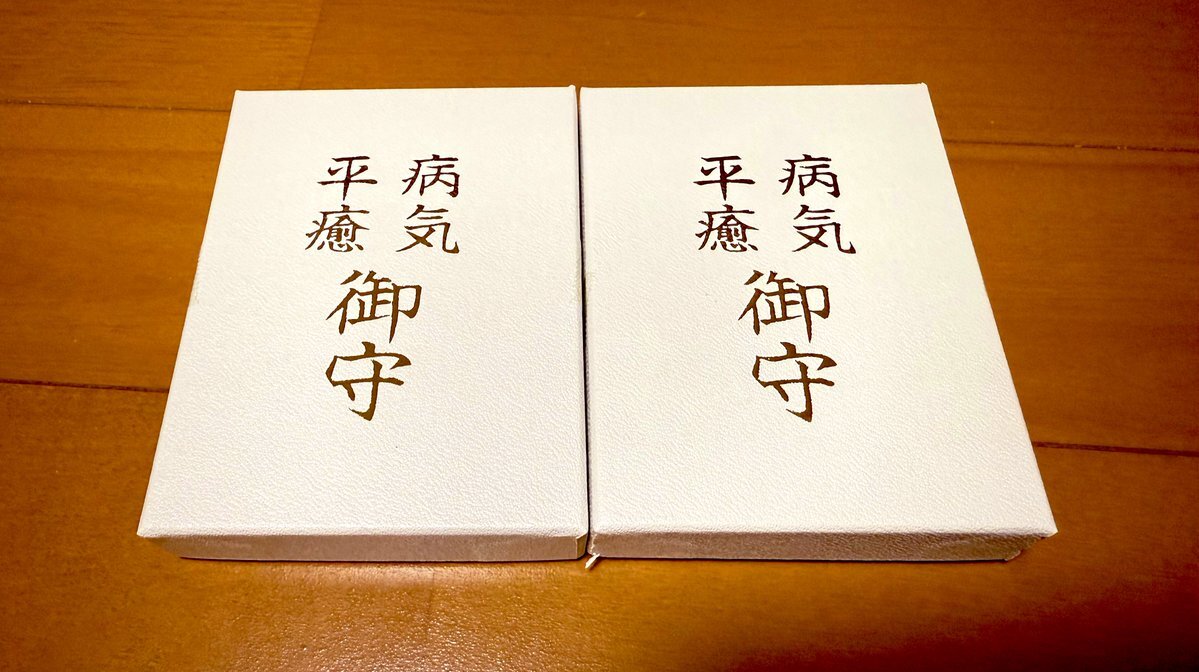 病気
平癒
御守
病気
平癒
御守